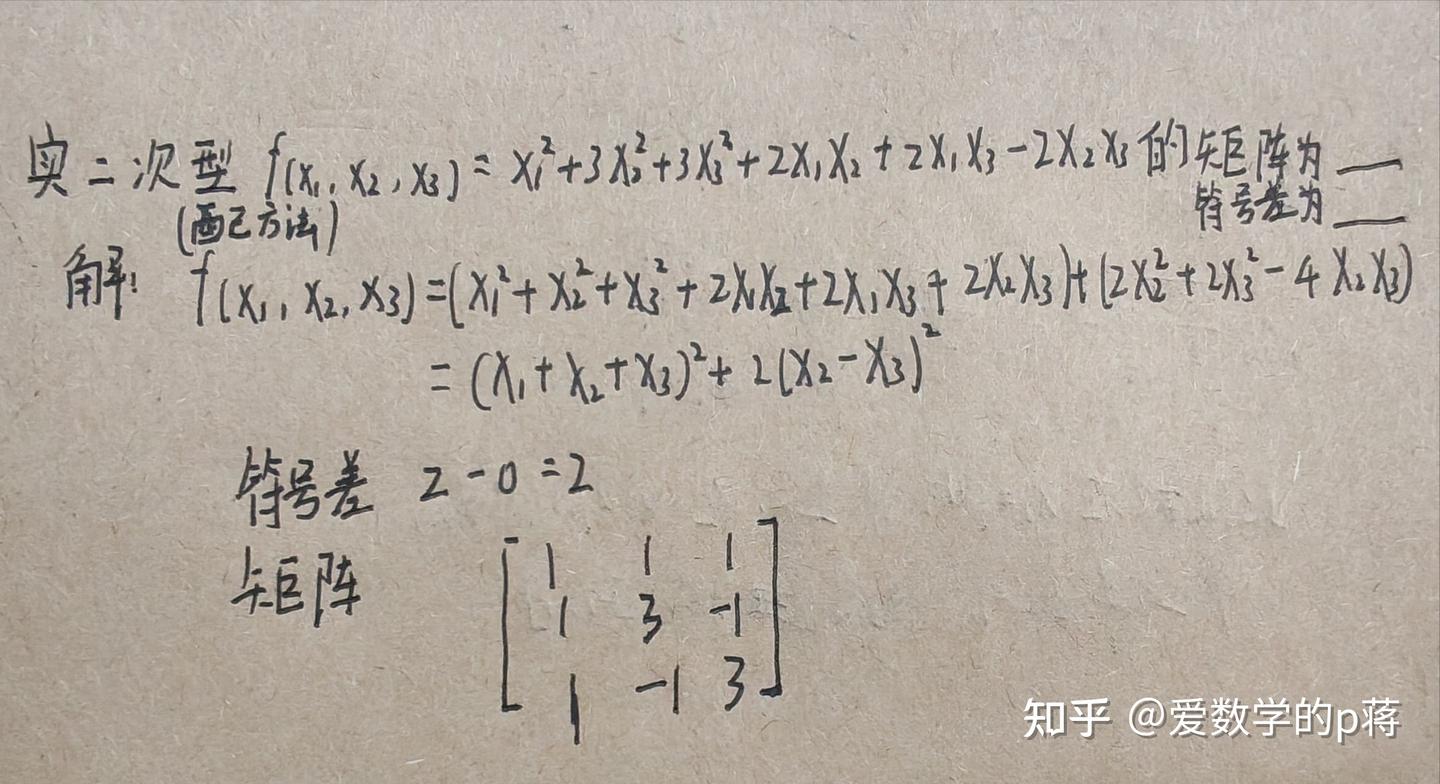 实二次型 f(x₁, x₂, x₃) = x₁²+3x₂²+3x₃²+2x₁x₂+2x₁x₃-2x₂x₃ 的矩阵为 __
符号差为 __
(配方法)
解: f(x₁, x₂, x₃) = (x₁²+x₂²+x₃²+2x₁x₂+2x₁x₃+2x₂x₃)+(2x₂²+2x₃²-4x₂x₃)
= (x₁+x₂+x₃)²+2(x₂-x₃)²
符号差 2-0=2
矩阵
1 1 1
1 3 -1
1 -1 3
知乎 @爱数学的p蒋